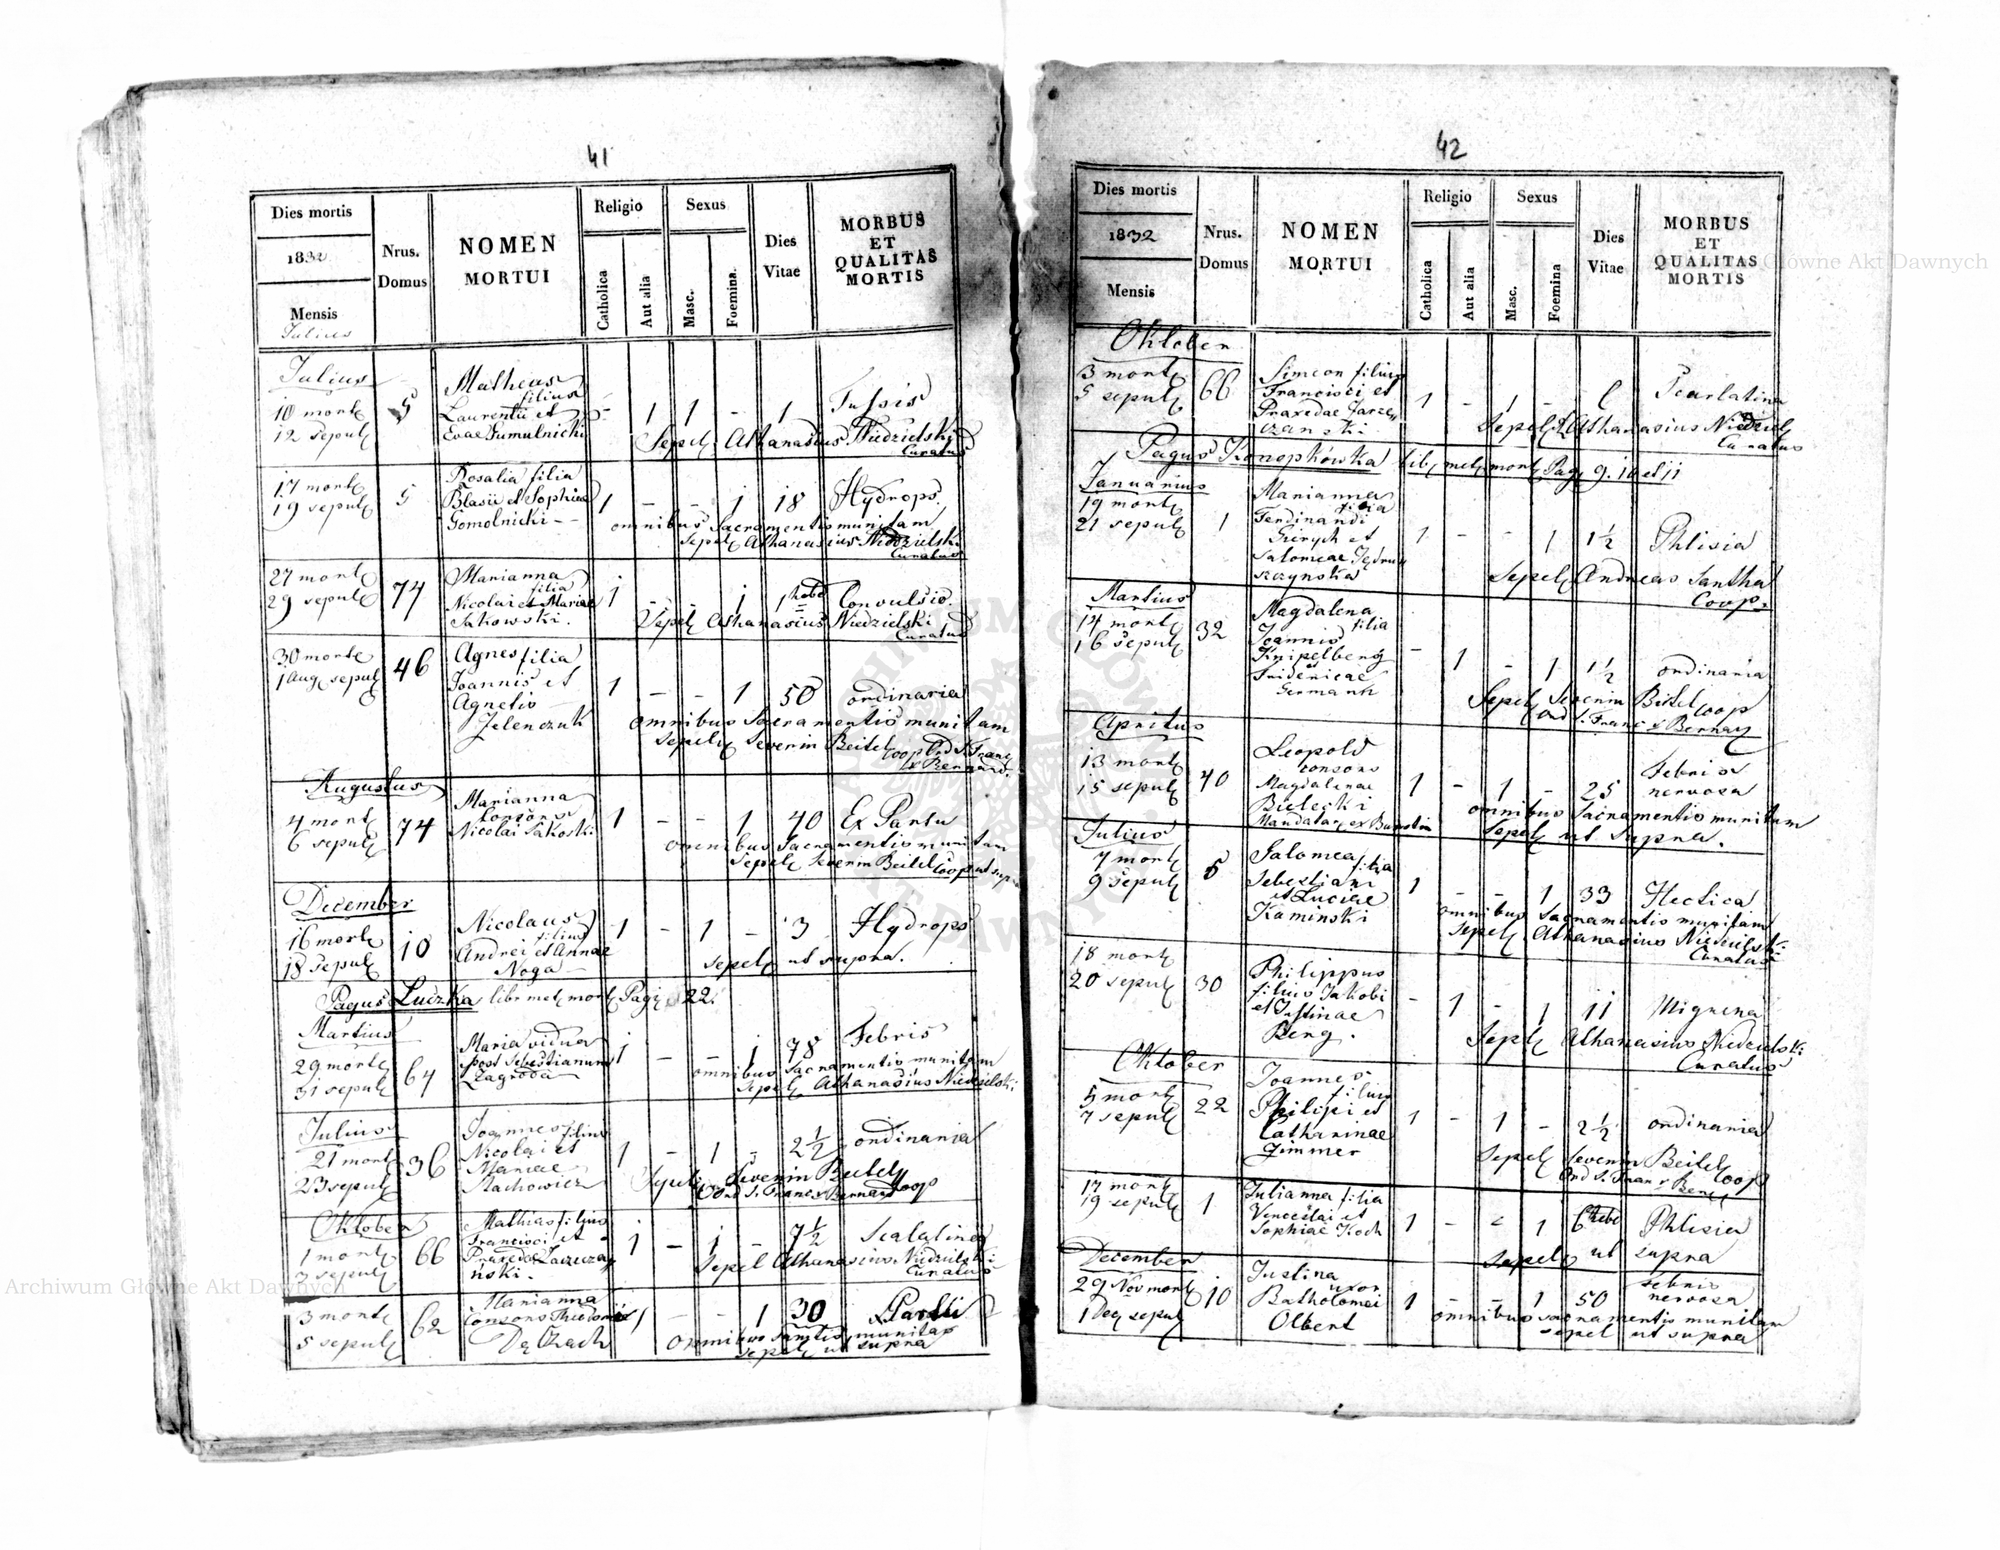 41
Dies mortis
1832
Mensis
Julius
Nrus.
Domus
NOMEN
MORTUI
Religio
Catholica
Aut alia
Sexus
Masc.
Foemina.
Dies
Vitae
MORBUS
ET
QUALITAS
MORTIS
Julius
10 mort
12 sepul
5
Matheus
filius
Laurentii et
Evae Gumulnicki
- 1 1 - 1 Tussis
Sepel Athanasius Niedzielski
Curatus
17 mort
19 sepul
5
Rosalia filia
Blasii et Sophiae
Gomolnicki
1 - - 1 18 Hydrops
omnibus Sacramentis munitam
sepel Athanasius Niedzielski
Curatus
27 mort
29 sepul
74
Marianna
filia
Nicolai et Mariae
Sakowski.
1 - - 1 1 hebd Convulsio.
Sepel Athanasius Niedzielski
Curatus
30 mort
1 Aug sepul
46
Agnes filia
Joannis et
Agnetis
Jelenczuk
1 - - 1 50 ordinaria
omnibus Sacramentis munitam
sepeli Severin Beitel Coop Ord S. Franc
x Bernard.
Augustus
4 mort
6 sepul
74
Marianna
Consors
Nicolai Sakoski
1 - - 1 40 Ex Partu
omnibus Sacramentis munitam
Sepel Severin Beitel Coop ut supra
December
16 mort
18 sepul
10
Nicolaus
filius
Andrei et Annae
Noga
1 - 1 - 3 Hydrops
sepel ut supra.
Pagus Luczka libr met mort Pag 22.
Martius
29 mort
31 sepul
64
Maria vidua
post Sebestianum
Zagroda
1 - - 1 78 Febris
omnibus sacramentis munitam
sepel Athanasius Niedzielski
Julius
21 mort
23 sepul
36
Joannes filius
Nicolai et
Mariae
Stachowicz
1 - 1 - 2 1/2 ordinaria
Severin Beitel
Ord S. Franc x Bernard Coop
Oktober
1 mort
3 sepul
66
Mathias filius
Francisci et
Praxedae Jarzeczay
ński.
1 - 1 - 7 1/2 Scalatina
Sepel Athanasius Niedzielski
Curatus
3 mort
5 sepul
62
Marianna
Consors Theodori
1 - - 1 30
omnibus munitam
sepel ut supra
42
Dies mortis
1832
Mensis
Nrus.
Domus
NOMEN
MORTUI
Religio
Catholica
Aut alia
Sexus
Masc.
Foemina
Dies
Vitae
MORBUS
ET
QUALITAS
MORTIS
Oktober
3 mort
5 sepul
66
Simeon filius
Francisci et
Praxedae Jarze,,
czanski.
1 - 1 - Scarlatina
Sepel Athanasius Niedziel
Curatus
Pagus Konopkówka lib met mort Pag 9. 10 et 11
Januarius
19 mort
21 sepul
1
Marianna
filia
Ferdinandi
Gierych et
Salomeae Jędru
szczynska
1 - - 1 1 1/2 Phtisia
Sepel Andreas Santha
Coop.
Martius
14 mort
16 sepul
32
Magdalena
filia
Joannis
Knipelberg
et
Fridericae
Germanh
- 1 - 1 1 1/2 ordinaria
Sepel Severin Beitel Coop
Ord S. Franc x Bernar
Aprilus
13 mort
15 sepul
40
Leopold
consors
Magdalenae
Bielecki
Mandatar ex Burstin
1 - 1 - 25 Febris
nervosa
omnibus Sacramentis munitum
Sepel ut supra.
Julius
7 mort
9 sepul
5
Salomea
filia
Sebestiani
et Luciae
Kaminski
1 - - 1 33 Hectica
omnibus Sacramentis munitam
sepel Athanasius Niedzielski
Curatus
18 mort
20 sepul
30
Philippus
filius Jakobi
et Justinae
Berg.
- 1 - 1 11 Migrena
Sepel Athanasius Niedzielski
Curatus
Oktober
5 mort
7 sepul
22
Joannes
filius
Philipi et
Catharinae
Zimmer
1 - 1 - 2 1/2 ordinaria
Sepel Severin Beitel
Coop
Ord S. Fran x Bern
17 mort
19 sepul
1
Julianna filia
Venceslai et
Sophiae Koch
1 - - 1 6 hebd Phtisia
Sepel ut supra
December
29 Nov mort
1 Dec sepul
10
Justina
uxor
Batholomei
Olbert
1 - - 1 50 febris
nervosa
omnibus sacramentis munitam
sepel ut supra
ARCHIWUM GŁÓWNE AKT DAWNYCH
Archiwum Główne Akt Dawnych
Główne Akt Dawnych